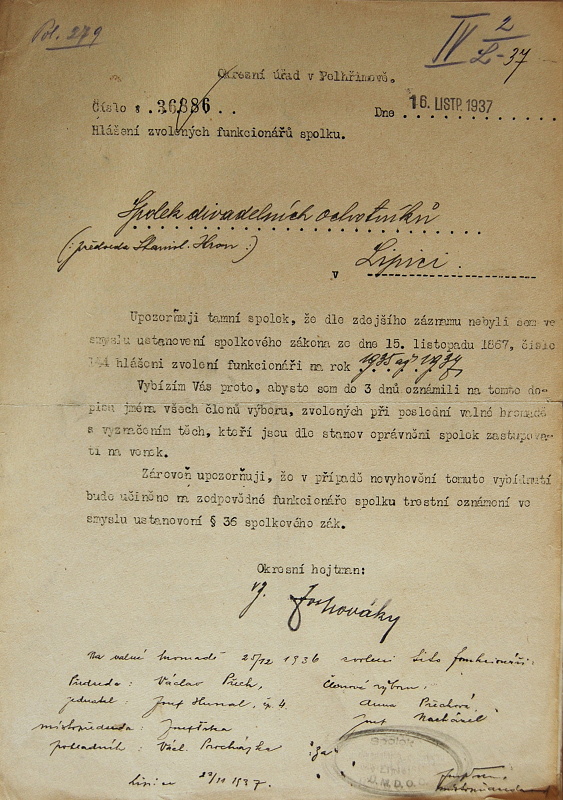 Pol. 279
IV 2
L-37
Okresní úřad v Pelhřimově.
Číslo : 36886 . .
Dne 16. LISTP. 1937
Hlášení zvolených funkcionářů spolku.
Spolek divadelních ochotníků
(: předseda Stanisl. Kron :)
v Lipici.
Upozorňuji tamní spolek, že dle zdejšího záznamu nebyli sem ve
smyslu ustanovení spolkového zákona ze dne 15. listopadu 1867, číslo
134 hlášeni zvolení funkcionáři na rok 1935 až 1937
Vybízím Vás proto, abyste sem do 3 dnů oznámili na tomto do-
pisu jména všech členů výboru, zvolených při poslední valné hromadě
s vyznačením těch, kteří jsou dle stanov oprávněni spolek zastupova-
ti na venek.
Zároveň upozorňuji, že v případě nevyhovění tomuto vybídnutí
bude učiněno na zodpovědné funkcionáře spolku trestní oznámení ve
smyslu ustanovení § 36 spolkového zák.
Okresní hejtman:
Na valné hromadě 25/12 1936 zvoleni tito funkcionáři:
Předseda: Václav Plech, Členové výboru:
jednatel: Josef čp. 4. Anna Plechová
místopředseda: Josef
pokladník: Václ. Procházka
Lipice 23/11 1937.
Spolek
Ú.M.D.O.Č.
místopředseda